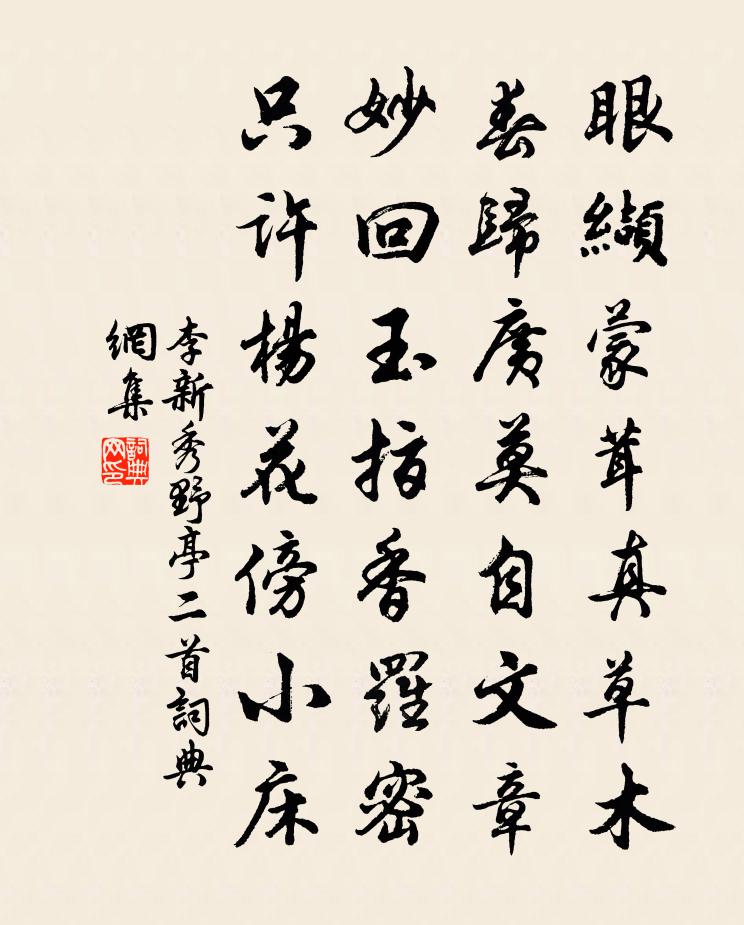 眼纈蒙茸真草木
春歸廣莫自文章
妙回玉指香羅密
只許楊花傍小床
李新秀野亭二首詞典
網集
詞典網印